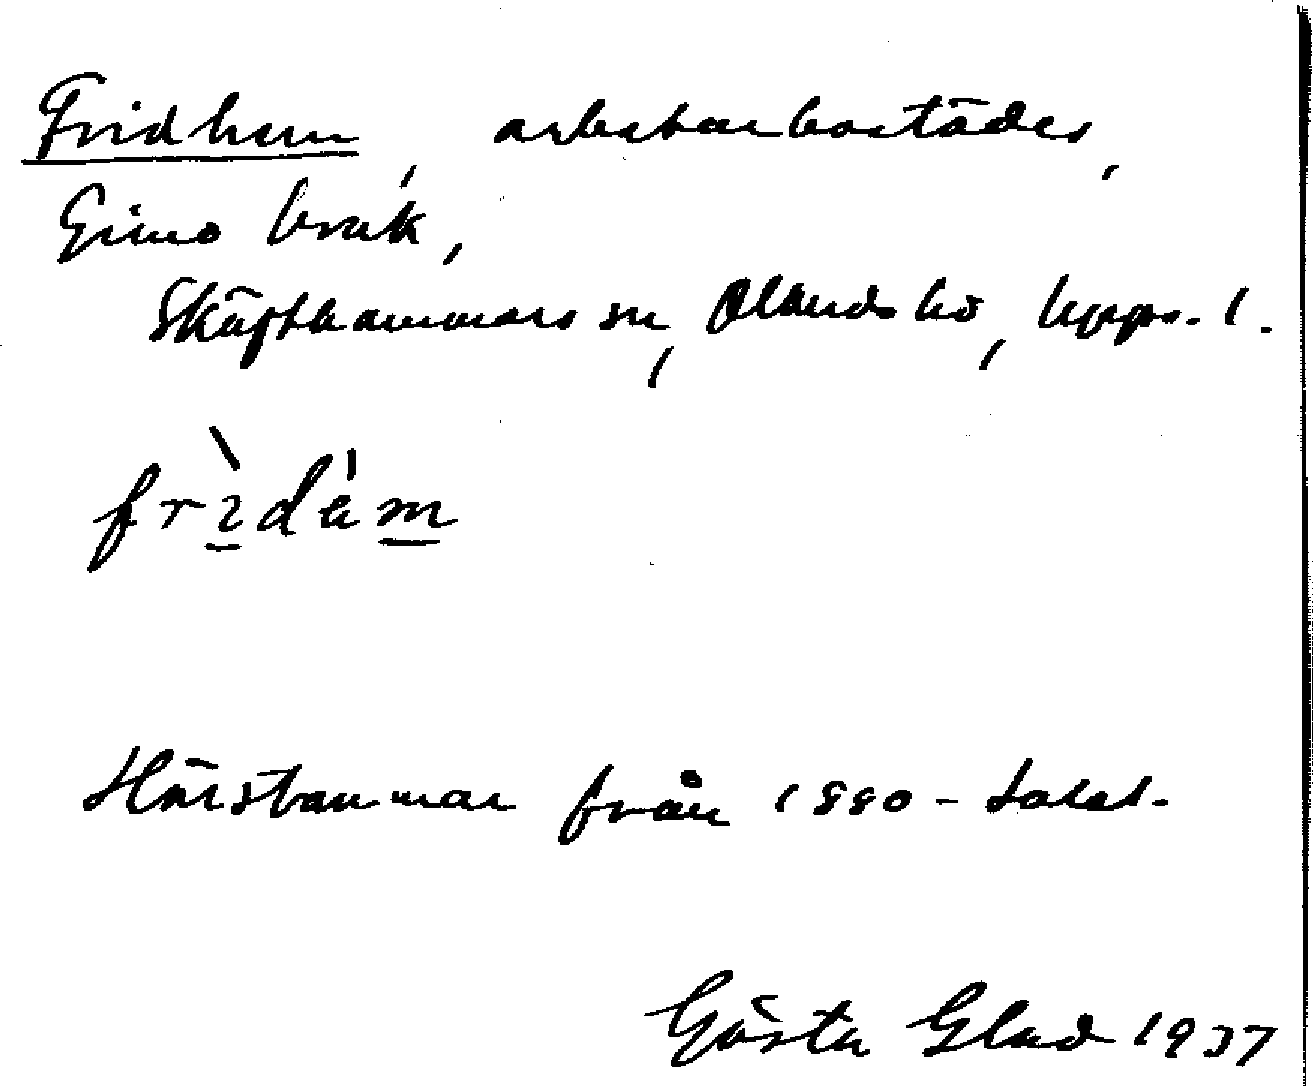 Fridhem, arbetarbostäder,
Gimo bruk,
Skäfthammars sn, Olands hd, Upps. l.
frìdèm
Härstammar från 1880-talet.
Gösta Glad 1937